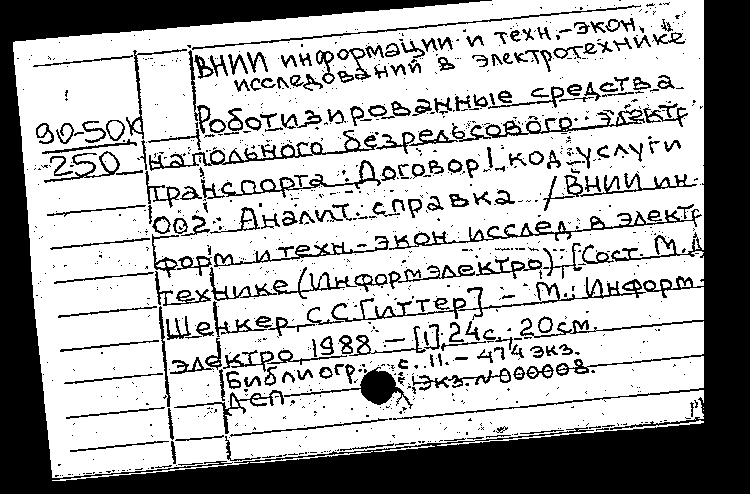 ВНИИ информации и техн.-экон.
исследований в электротехнике
90-50К
250
Роботизированные средства
напольного безрельсового электр
транспорта: Договор!, код услуги
002: Аналит. справка / ВНИИ ин-
форм. и техн.-экон. исслед. в электр
технике (Информэлектро); [Сост. М.Д
Шенкер, С.С. Гиттер]. - М.: Информ-
электро, 1988. - [1], 24 с.; 20 см.
Библиогр.: с. 11. - 474 экз.
ДСП. Экз. N 000008.